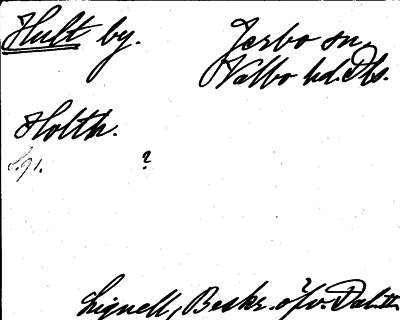 Hult by. Jerbo sn.
Valbo hd. Dls.
Holth.
L. 91. ?
Lignell, Beskr. ö/v. Dal. II